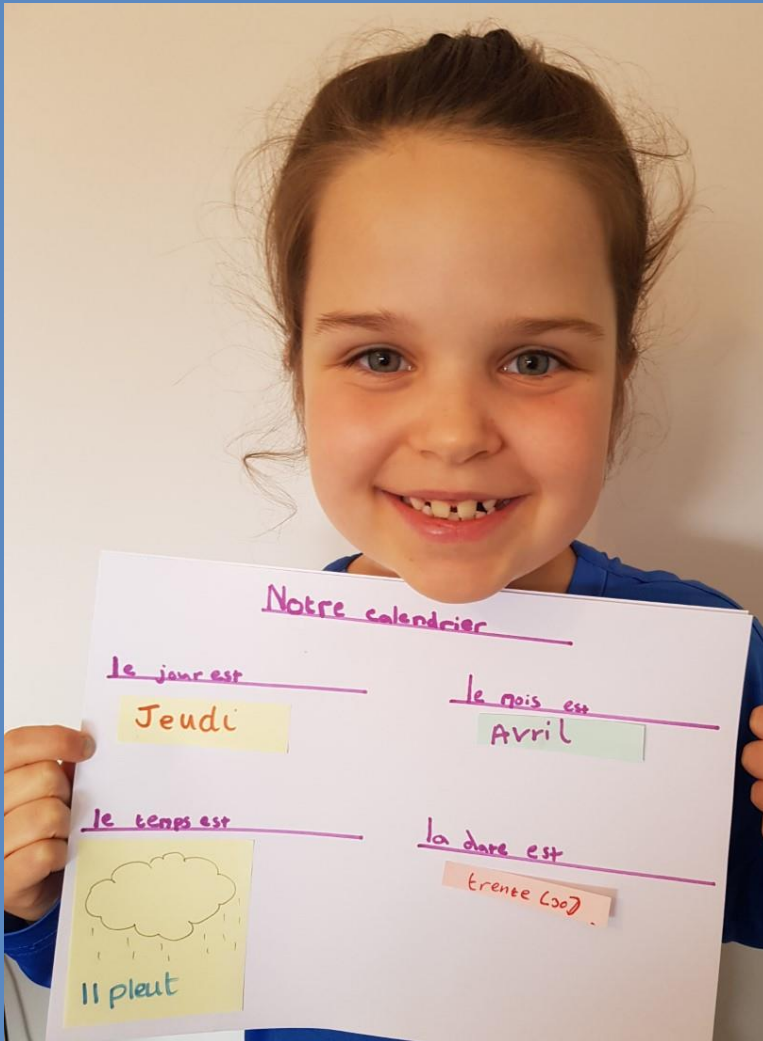 Notre calendrier
le jour est
Jeudi
le mois est
Avril
le temps est
Il pleut
la date est
trente (30)